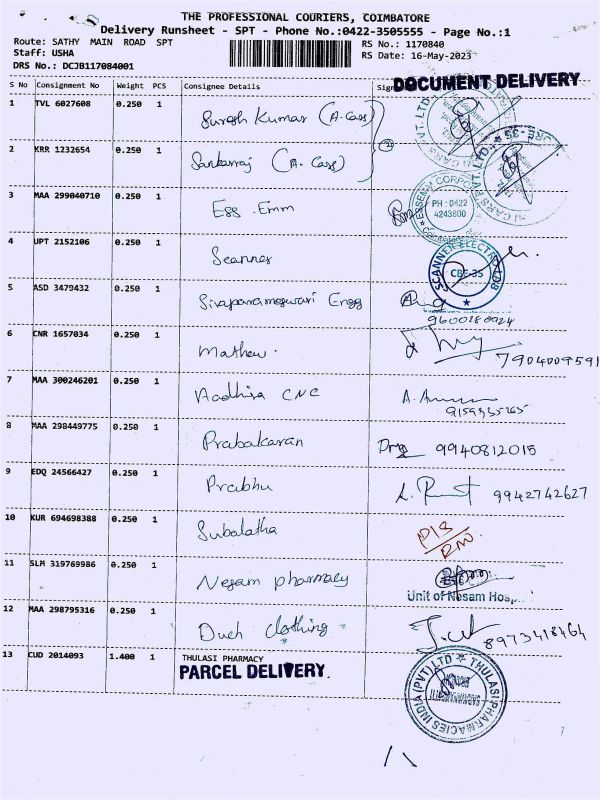 THE PROFESSIONAL COURIERS, COIMBATORE
Delivery Runsheet - SPT - Phone No.:0422-3505555 - Page No.:1
Route: SATHY MAIN ROAD SPT RS No.: 1170840
Staff: USHA RS Date: 16-May-2023
DRS No.: DCJB117084001
DOCUMENT DELIVERY
S No Consignment No Weight PCS Consignee Details
1 TVL 6027608 0.250 1 Suresh Kumar (A-Cars)
2 KRR 1232654 0.250 1 Sankarraj (A-Cars)
3 MAA 299040710 0.250 1 Ess Emm
PH : 0422
4243800
4 UPT 2152106 0.250 1 Scanner
SCANNER ELECTRO
CBE-35
5 ASD 3479432 0.250 1 Sivaparameswari Engg
9600280924
6 CNR 1657034 0.250 1 Mathew. 7904009591
7 MAA 300246201 0.250 1 Aadhira CNC
8 MAA 298449775 0.250 1 Prabakaran 9940812015
9 EDQ 24566427 0.250 1 Prabhu 9942742627
10 KUR 694698388 0.250 1 Subalatha
11 SLM 319769986 0.250 1 Nesam pharmacy
Unit of Nesam Hosp
12 MAA 298795316 0.250 1 Duch clothing 8973418464
13 CUD 2014093 1.400 1 THULASI PHARMACY
PARCEL DELIVERY
THULASI PHARMACIES INDIA (PVT) LTD